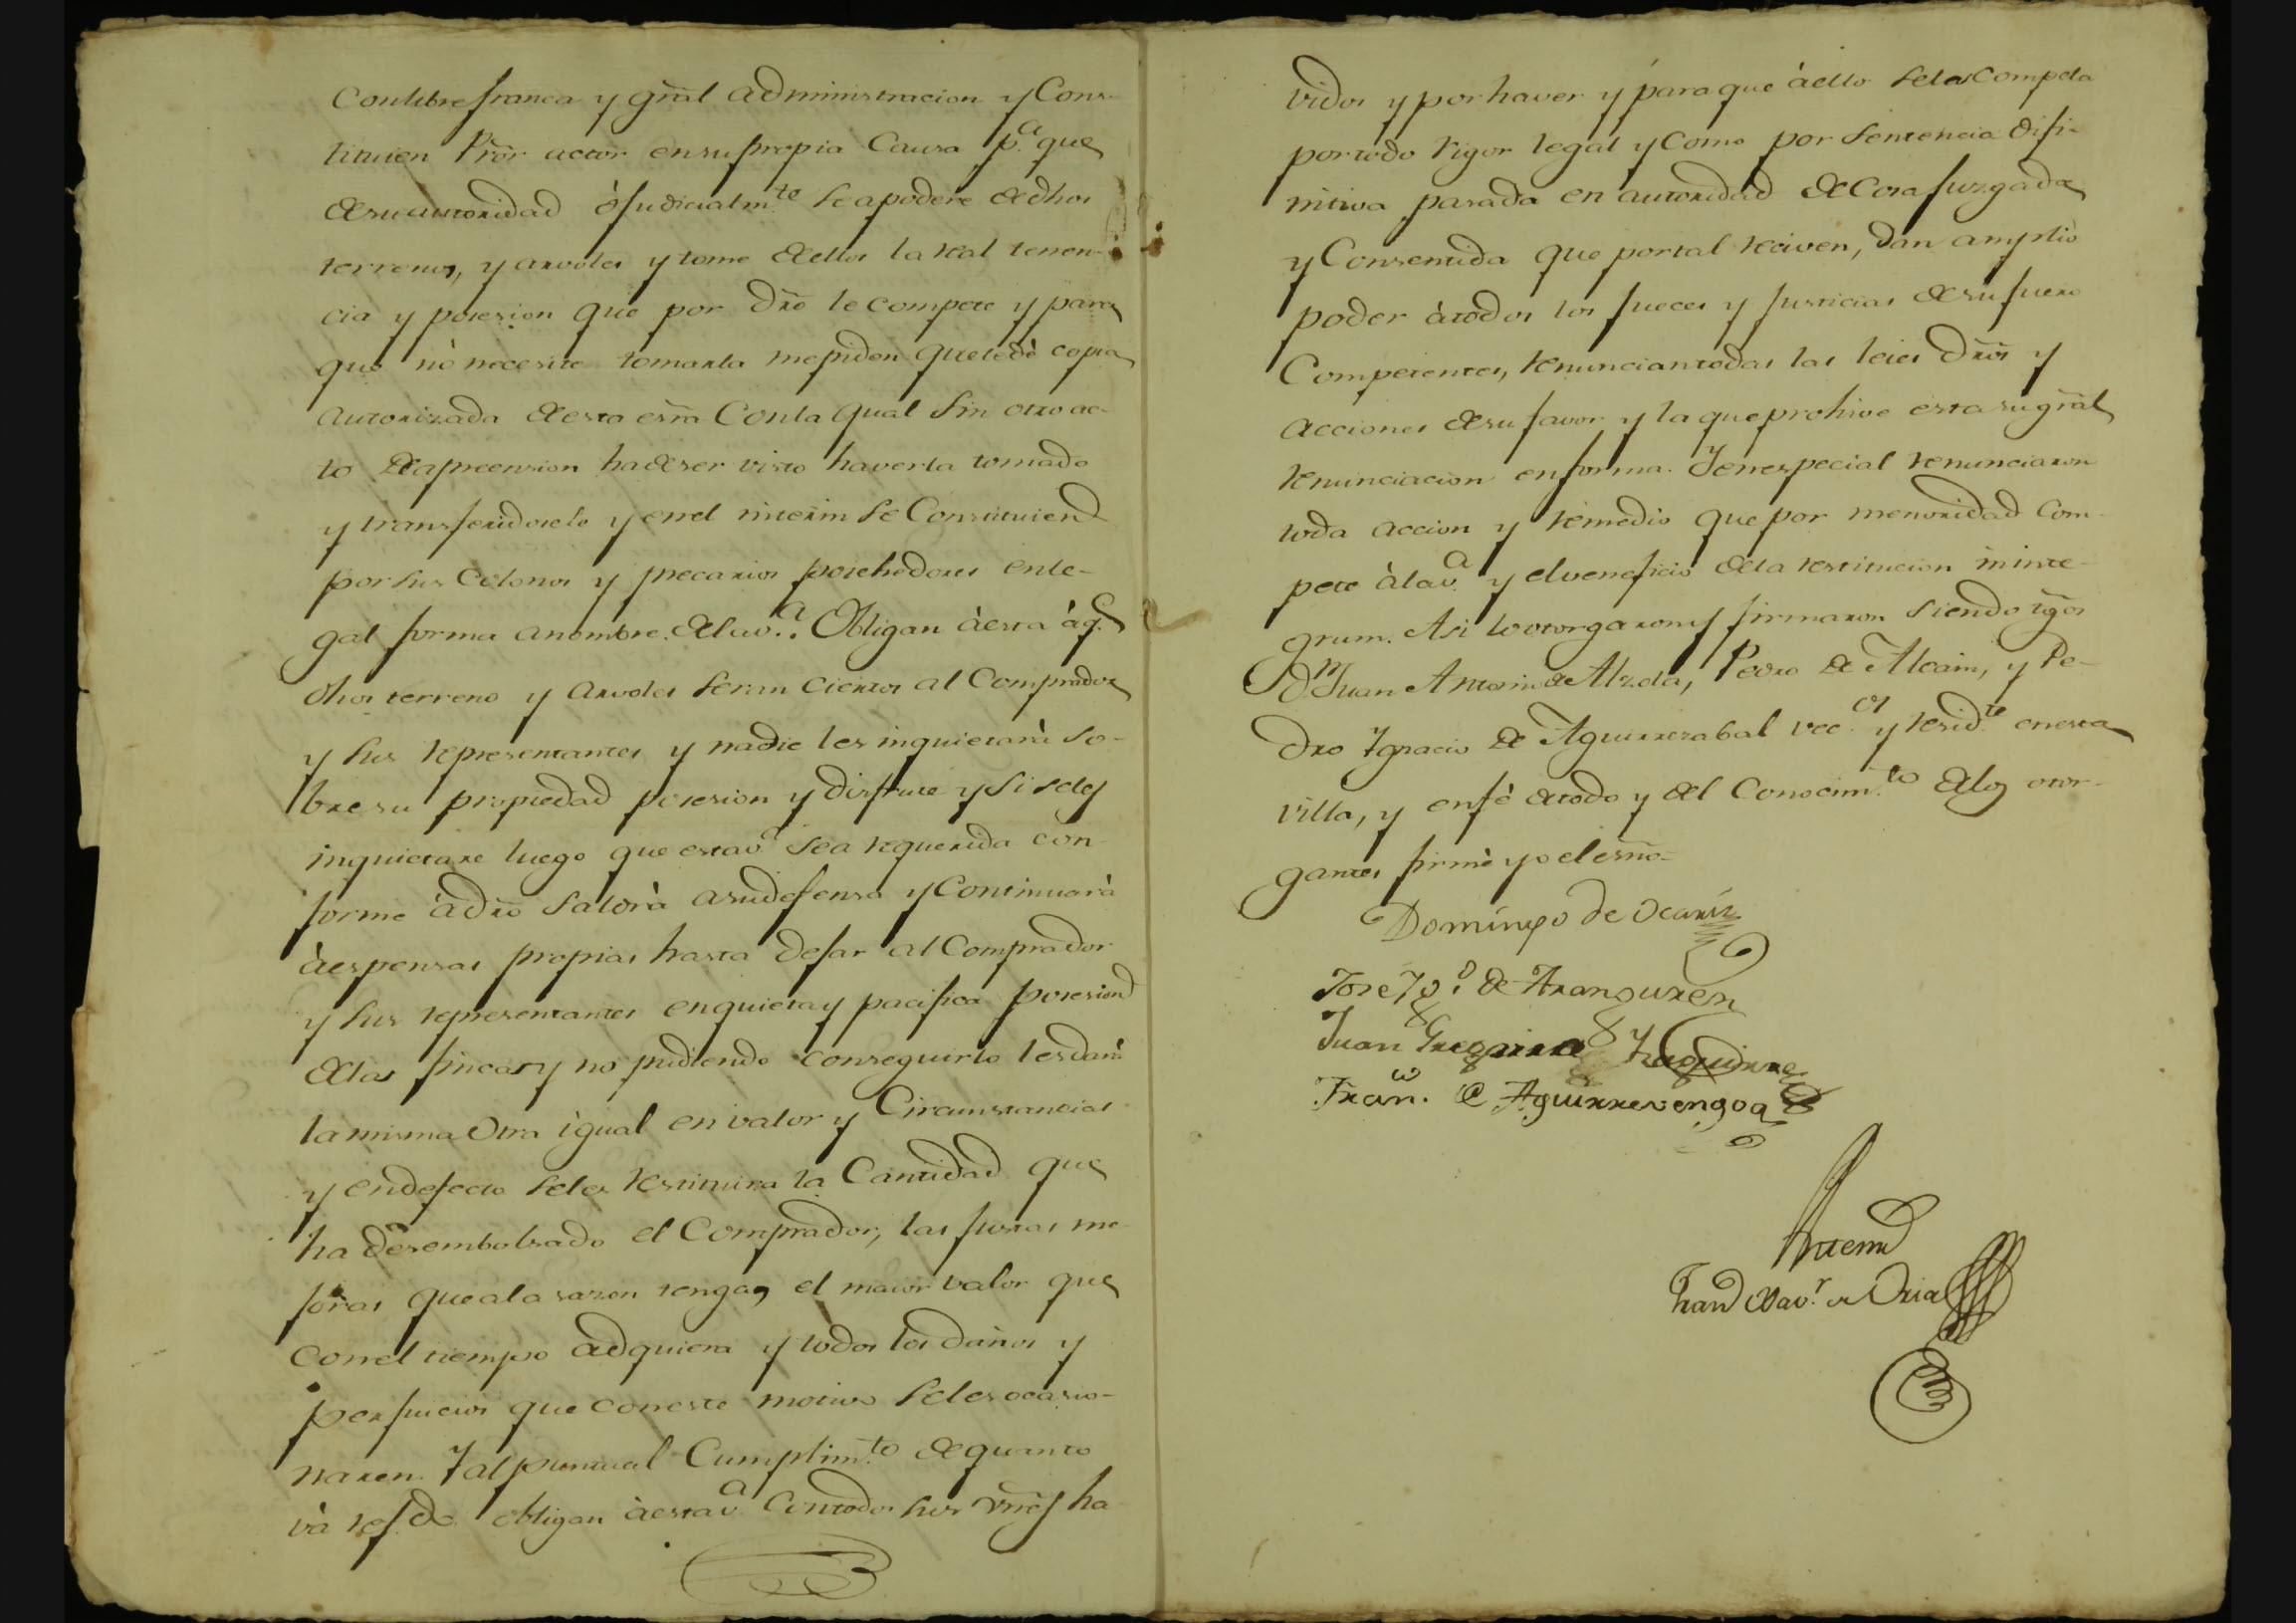 Con libre franca y gñal administracion y Cons-
tituien Prõr actor en su propia Causa p.ª que
de su autoridad ò judicialm.te se apodere de dhos
terrenos, y arvoles y tome de ellos la real tenen-
cia y posesion que por dro le compete y para
que nò necesite tomarla me piden que le dè copia
autorizada de esta esrña Con la qual sin otro ac-
to de apreension ha de ser visto haverla tomado
y transferidosele y en el interin se Constituien
por sus Colonos y precarios posehedores en le-
gal forma a nombre de la v.ª Obligan à esta à q.e
dhos terreno y arvoles seran ciertos al Comprador
y sus representantes y nadie les inquietarà so-
bre su propiedad posesion y disfrute y si se les
inquietare luego que esta v.ª sea requerida con-
forme à dro saldrà a su defensa y Continuarà
à espensas propias hasta dejar al Comprador
y sus representantes en quieta y pacifica posesion
de las fincas y no pudiendo conseguirlo les darà
la misma Otra igual en valor y Circunstancias
y en defecto se les restituira la Cantidad que
ha desembolsado el Comprador, las
joras que a la sazon tenga, el maior valor que
con el tiempo adquiera y todos los daños y
perjuicios que con este motivo se les ocasio-
naren. Y al puntual Cumplim.to de quanto
và ref.do obligan à esta v.ª Con todos sus vñes ha
vidos y por haver y para que à ello se les compela
por todo rigor legal y Como por Sentencia difi-
nitiva pasada en autoridad de Cosa juzgada
y Consentida que por tal reciven, dan amplio
poder à todos los jueces y justicias de su fuero
Competentes, renuncian todas las leies dros y
acciones de su favor y la que prohive esta su gñal
renunciacion en forma. Y en especial renunciaron
toda accion y remedio que por menoridad com-
pete à la v.ª y el veneficio de la restitucion in inte-
grum. Asi lo otorgaron y firmaron siendo tgos
D.n Juan Antonio de Alzola, Pedro de Alcain, y Pe-
dro Ygnacio de Aguirrezabal vec.os y resid.te en esta
villa, y en fè de todo y del Conocim.to de los otor-
gantes firmè yo el esrño=
Domingo de Ocariz
Jose Yg.o de Aranguren
Juan
Fran.co de Aguirrevengoa
Antemi
Fran.co Xav.r de Oria